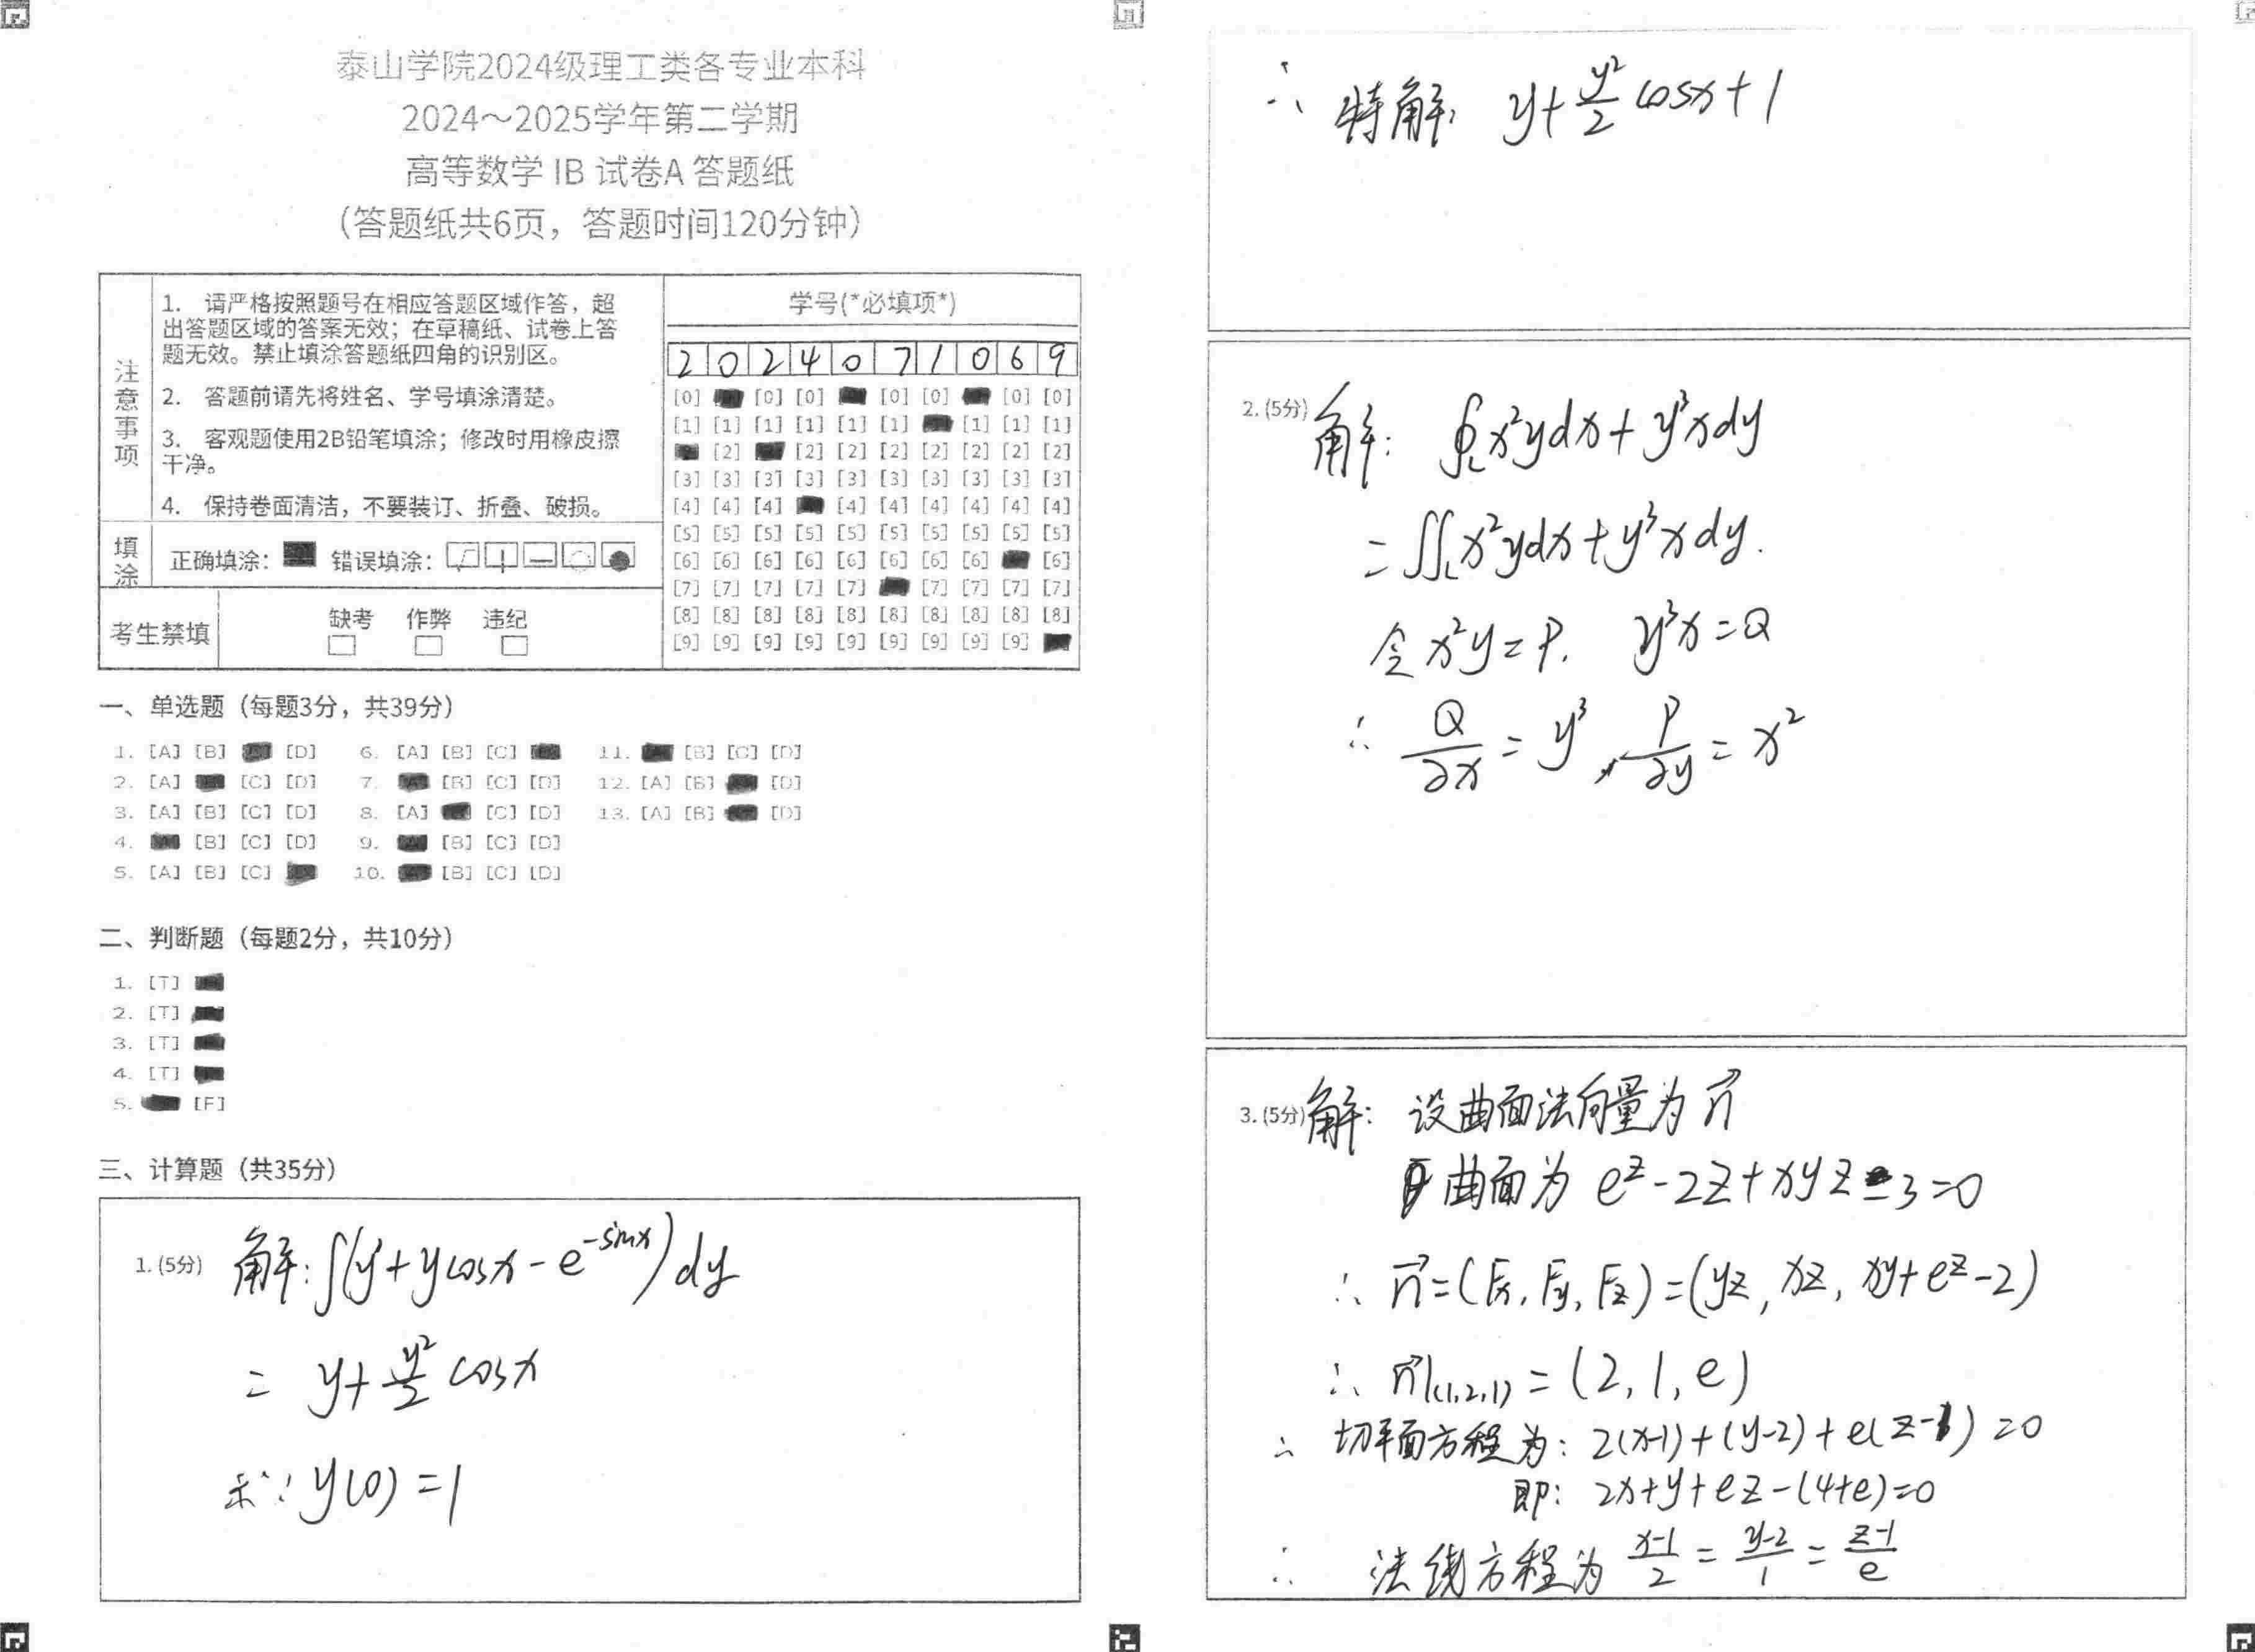 泰山学院2024级理工类各专业本科
2024～2025学年第二学期
高等数学 IB 试卷A 答题纸
（答题纸共6页，答题时间120分钟）
注意事项
1. 请严格按照题号在相应答题区域作答，超
出答题区域的答案无效；在草稿纸、试卷上答
题无效。禁止填涂答题纸四角的识别区。
2. 答题前请先将姓名、学号填涂清楚。
3. 客观题使用2B铅笔填涂；修改时用橡皮擦
干净。
4. 保持卷面清洁，不要装订、折叠、破损。
填涂 正确填涂： 错误填涂：
考生禁填 缺考 作弊 违纪
学号(*必填项*)
2 0 2 4 0 7 1 0 6 9
[0] [0] [0] [0] [0] [0] [0]
[1] [1] [1] [1] [1] [1] [1] [1] [1]
[2] [2] [2] [2] [2] [2] [2] [2]
[3] [3] [3] [3] [3] [3] [3] [3] [3] [3]
[4] [4] [4] [4] [4] [4] [4] [4] [4]
[5] [5] [5] [5] [5] [5] [5] [5] [5] [5]
[6] [6] [6] [6] [6] [6] [6] [6] [6]
[7] [7] [7] [7] [7] [7] [7] [7] [7]
[8] [8] [8] [8] [8] [8] [8] [8] [8] [8]
[9] [9] [9] [9] [9] [9] [9] [9] [9]
一、单选题（每题3分，共39分）
1. [A] [B] [D] 6. [A] [B] [C] 11. [B] [C] [D]
2. [A] [C] [D] 7. [B] [C] [D] 12. [A] [B] [D]
3. [A] [B] [C] [D] 8. [A] [C] [D] 13. [A] [B] [D]
4. [B] [C] [D] 9. [B] [C] [D]
5. [A] [B] [C] 10. [B] [C] [D]
二、判断题（每题2分，共10分）
1. [T]
2. [T]
3. [T]
4. [T]
5. [F]
三、计算题（共35分）
1.(5分) 解: ∫(y'+ycosx-e^{-sinx})dy
= y+y²/2 cosx
∵ y(0)=1
∴ 特解: y+y²/2 cosx+1
2.(5分) 解: ∮_L x²ydx+y³xdy
=∬_L x²ydx+y³xdy.
令x²y=P. y³x=Q
∴ Q/∂x=y³, P/∂y=x²
3.(5分) 解: 设曲面法向量为 n⃗
曲面为 e^z-2z+xyz-3=0
∴ n⃗=(Fx, Fy, Fz)=(yz, xz, xy+e^z-2)
∴ n⃗|(1,2,1)=(2,1,e)
∴ 切平面方程为: 2(x-1)+(y-2)+e(z-1)=0
即: 2x+y+ez-(4+e)=0
∴ 法线方程为 x-1/2=y-2/1=z-1/e